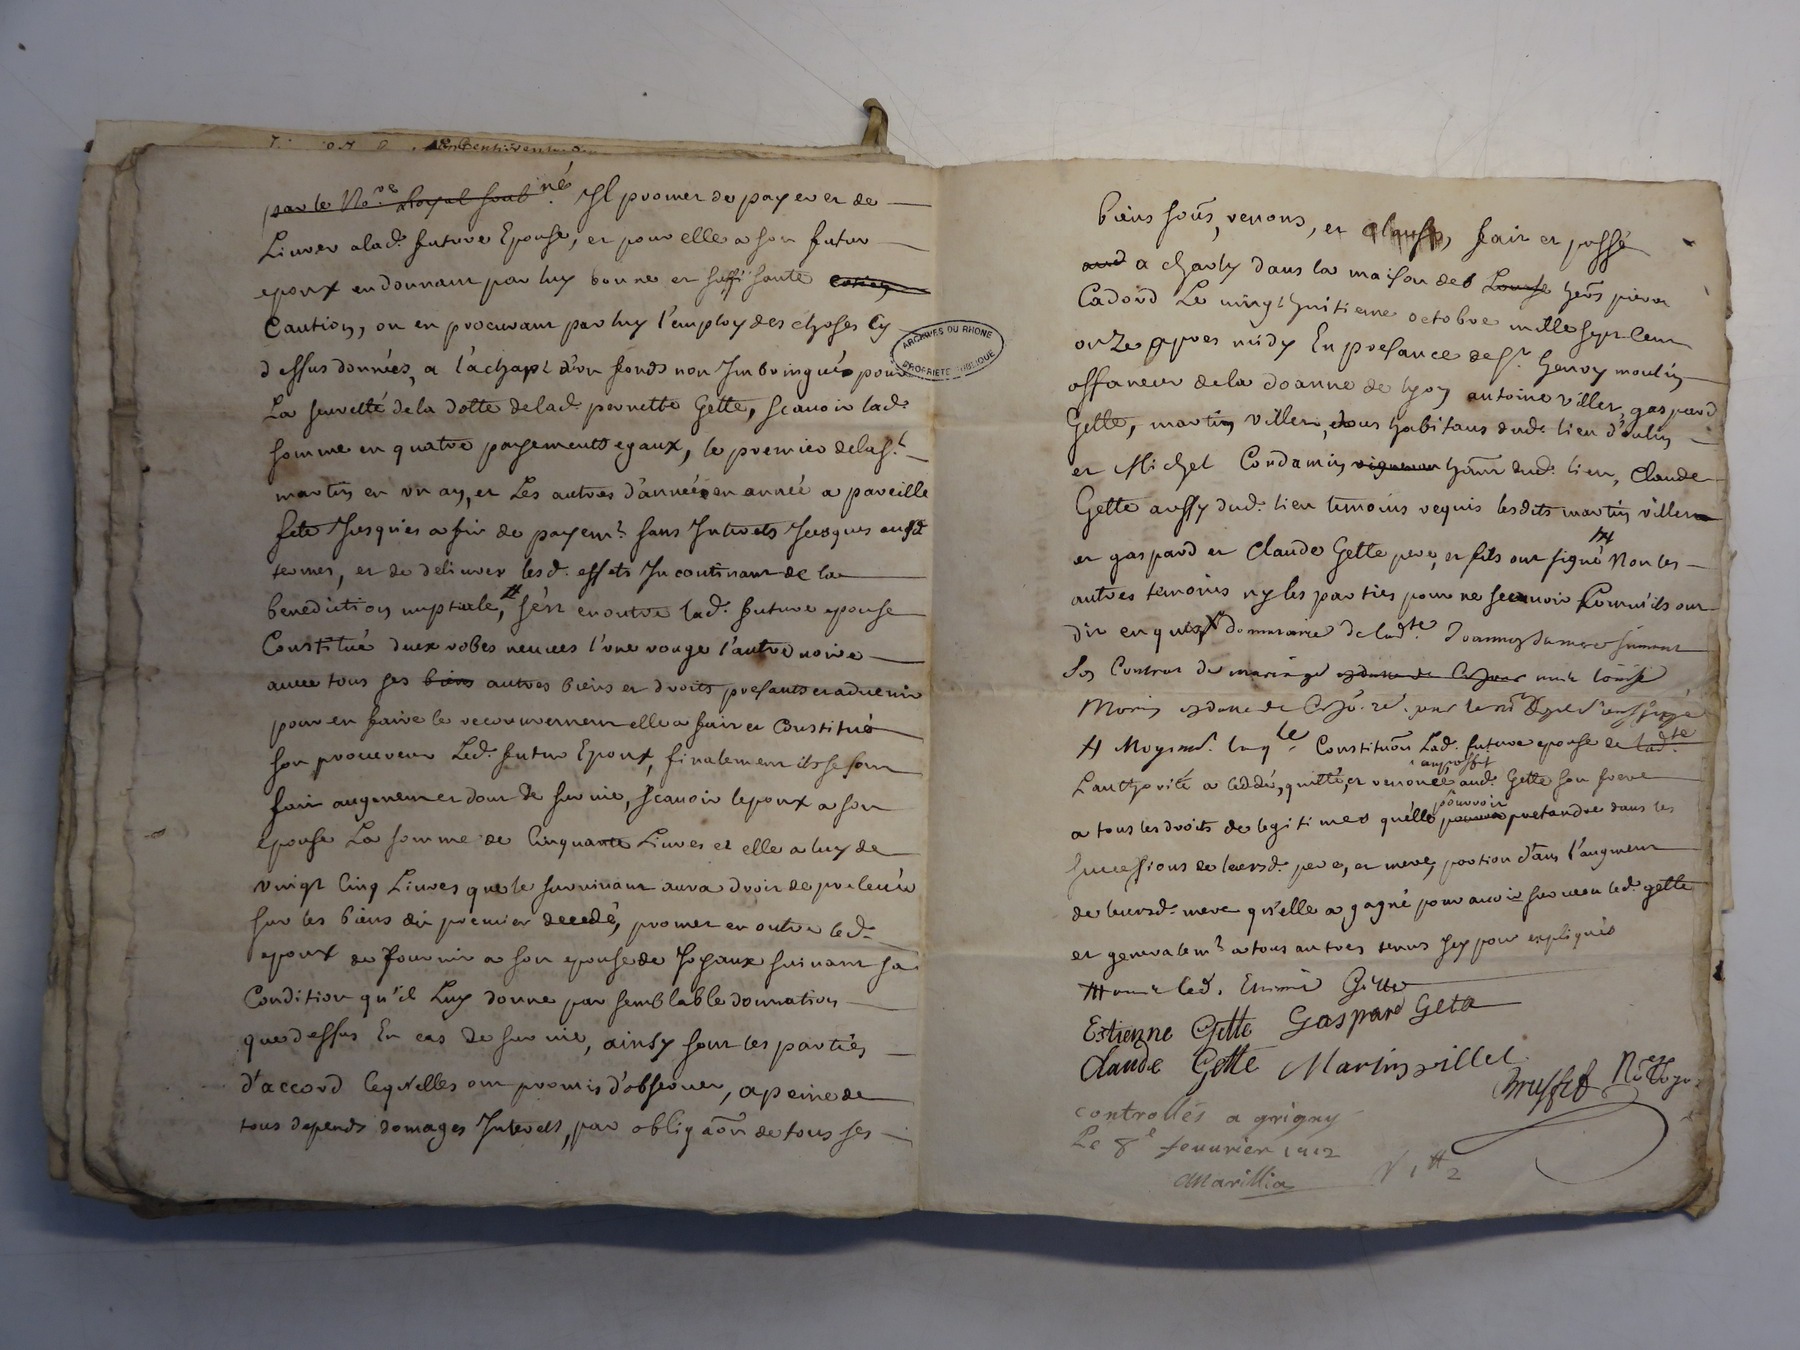 par le No.re Royal soub.né Il promet de payer et de
Liurer a lad. future Epouse, et pour elle a son futur
epoux en donnant par luy bonne et suffisante
Caution, ou en procurant par luy l'employ des choses Cy
dessus données, a l'achapt d'un fonds non Imbringués pour
La seuretté de la dotte de lad. pernette Gette, scauoir lad.
somme en quatre payements egaux, le premier de la st
martin en vn an, et Les autres d'année en année a pareille
fete Jusques a fin de payemt sans Interets Jusques ausd
termes, et de deliurer lesd. effets Incontinant de la
benediction nuptiale, s'est en outre lad. future epouse
Constitué deux robes neuues l'une rouge l'autre noire
auec tous ses biens autres biens et droits presants et aduenir
pour en faire le recouurement elle a fait et Constitué
son procureur Led. futur Epoux, finalement ils se sont
fait augment et don de suruie, scauoir lepoux a son
epouse La somme de Cinquante Liures et elle a luy de
vuigt Cinq Liures que le suruiuant aura droit de preleuer
sur les biens du premier decedé, promet en outre led.
epoux de fournir a son epouse de Joyaux suiuant sa
Condition qu'il Luy donne par semblable donnation
que dessus En cas de suruie, ainsy sont les parties
d'accord lequelles ont promis d'obseruer, a peine de
tous depends domages Interets, par obligaon de tous ses
biens soûs, renons, et clauses, fait et passé
a charly dans la maison des hers pierre
Cadord Le vingt huitieme octobre mille sept Cent
onze apres midy En presance de sr. henry moulin
affaneur de la doanne de lyon antoine viller, gaspard
Gette, martin viller, tous habitans dud. lieu d'oulin
et Michel Condamin vigneron hant dud. lieu, Claude
Gette aussy dud. lieu temoins requis lesdits martin viller
et gaspard et Claude Gette pere, et fils ont signé Non les
autres temoins ny les parties pour ne scauoir Comm'ils ont
dit enquis
Son Contrat de mariage
Constituõn Lad. future epouse de
L'authorité a ceddé, quitté, et renoncé aud. Gette son frere
a tous les droits de legitimes qu'elle pourroit pretandre dans les
successions de leursd. pere, et mere, portion d'ans l'augment
de leursd. mere qu'elle a gagné pour auoir suruecu led. gette
et generalemt a tous autres
Estienne Gette Gaspard Geta
Claude Gette Martin villet
controllés a grigny
Le 8e feuurier 1712
Marillia
ARCHIVES DU RHONE
PROPRIETE PUBLIQUE